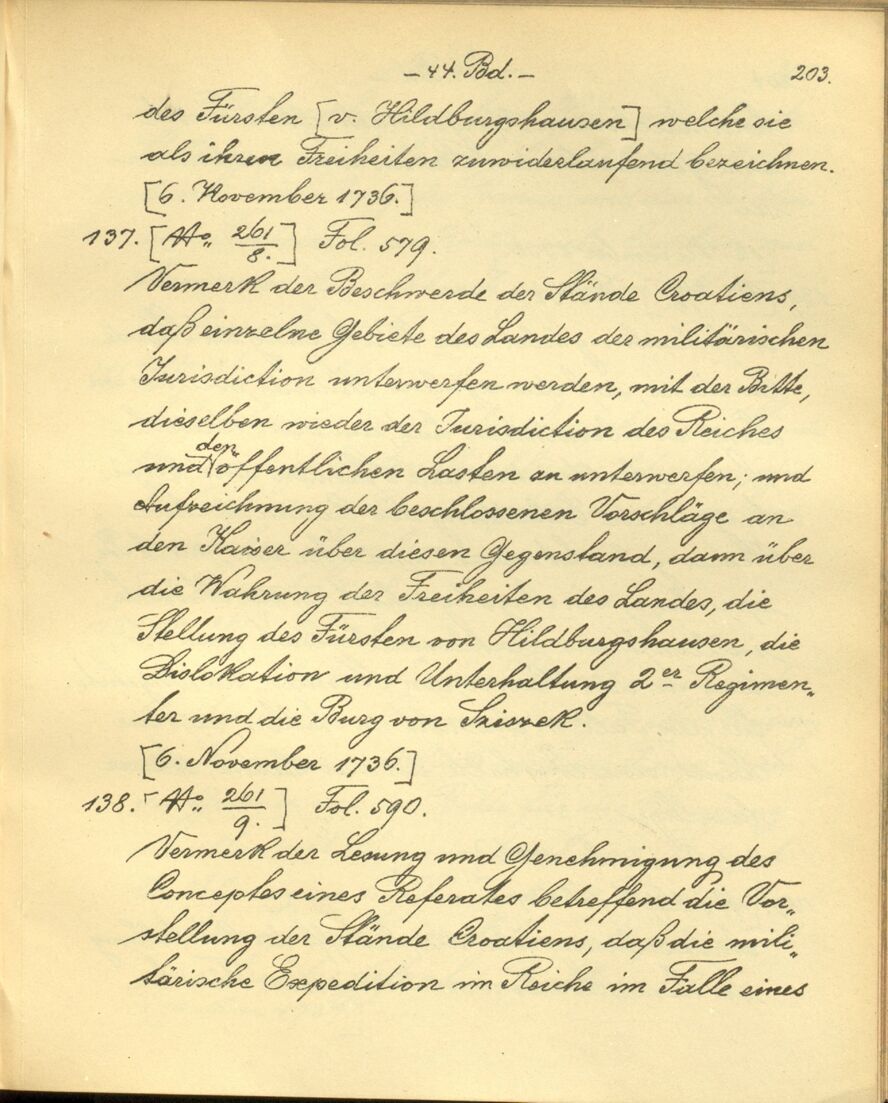 — 44. Bd. — 203.
des Fürsten [v. Hildburgshausen] welche sie
als ihren Freiheiten zuwiderlaufend bezeichnen.
[6. November 1736.]
137. [No 261/8.] Fol. 579.
Vermerk der Beschwerde der Stände Croatiens,
daß einzelne Gebiete des Landes der militärischen
Jurisdiction unterworfen werden, mit der Bitte,
dieselben wieder der Jurisdiction des Reiches
und den öffentlichen Lasten zu unterwerfen; und
Aufzeichnung der beschlossenen Vorschläge an
den Kaiser über diesen Gegenstand, dann über
die Wahrung der Freiheiten des Landes, die
Stellung des Fürsten von Hildburgshausen, die
Dislokation und Unterhaltung 2er Regimen„
ter und die Burg von Sziszek.
[6. November 1736.]
138. [No 261/9.] Fol. 590.
Vermerk der Lesung und Genehmigung des
Conceptes eines Referates betreffend die Vor„
stellung der Stände Croatiens, daß die mili„
tärische Expedition im Reiche im Falle eines